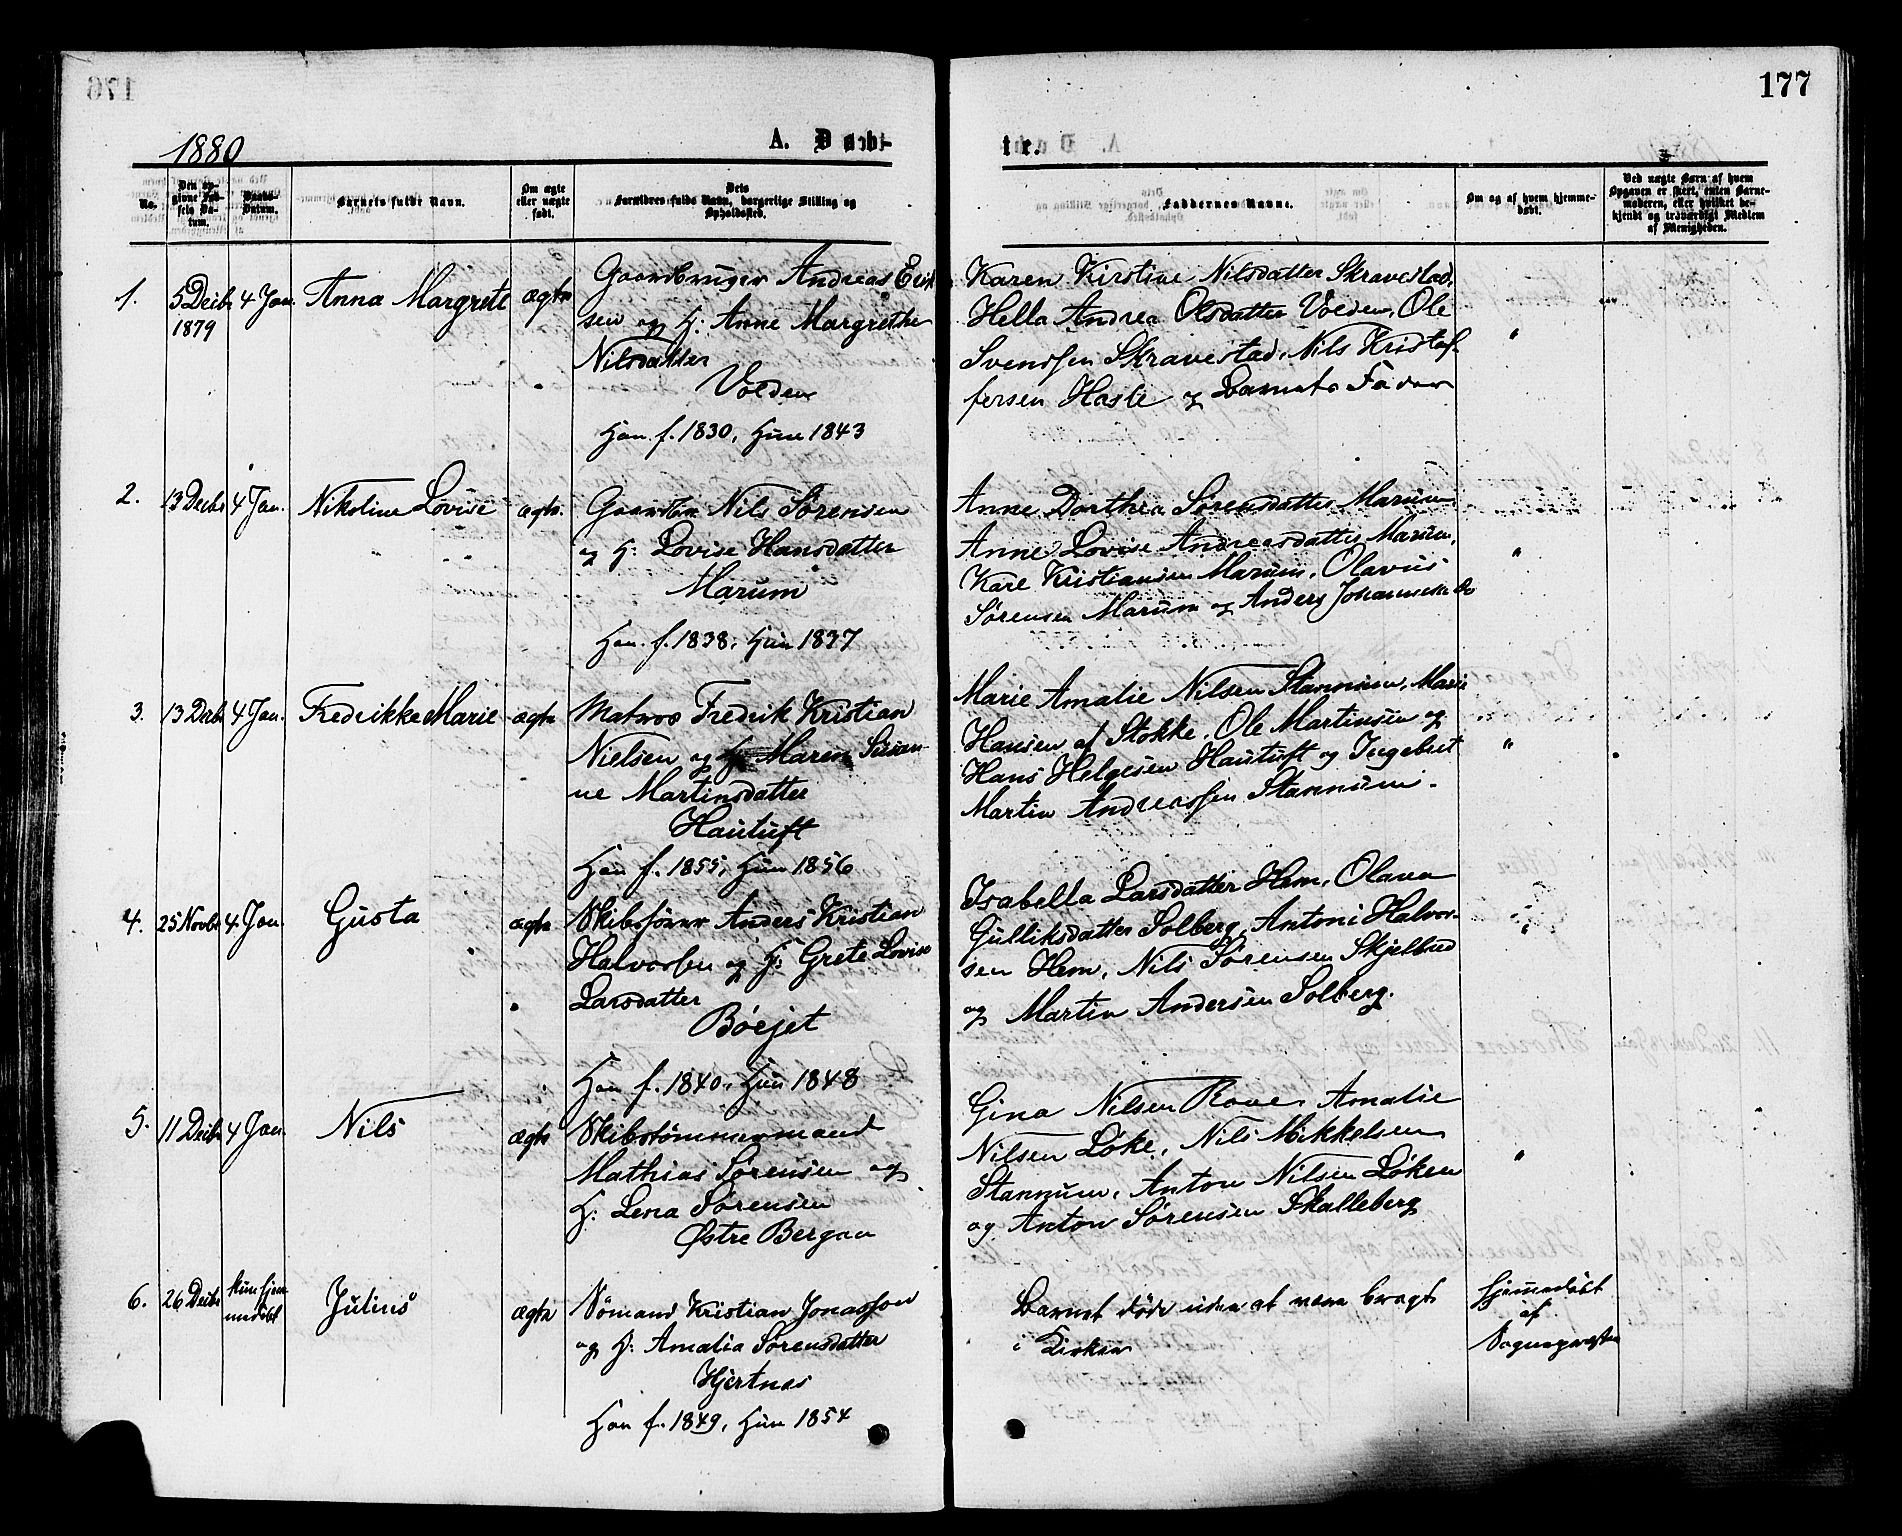 177
1880
A. Døbte.
No.
Den opgivne Fødsels Datum.
Daabs-Datum.
Barnets fulde Navn.
Om ægte eller uægte født.
Dets Forældres fulde Navn, borgerlige Stilling og Opholdssted.
Faddernes Navne.
Om og af hvem hjemmedøbt.
Ved uægte Børn af hvem Opgaven er skeet, enten Barnemoderen, eller hvilket bekjendt og troværdigt Medlem af Menigheden.
1. 5 Decbr 1879 4 Jan. Anna Margrete ægte
Gaardbruger Andreas Erik
sen og H: Anne Margrethe
Nilsdatter
Volden
Han f. 1830, Hun 1843
Karen Kirstine Nilsdatter Skravestad,
Hella Andrea Olsdatter Volden, Ole
Svendsen Skravestad, Nils Kristof-
fersen Hasle og Barnets Fader
"
2. 13 Decbr 4 Jan. Nikoline Lovise ægte.
Gaardbr Nils Sørensen
og H: Lovise Hansdatter
Marum
Han f. 1838, Hun 1837
Anne Dorthea Sørensdatter Marum
Anne Lovise Andreasdatter Marum,
Kristiansen Marum, Olavus
Sørensen Marum og Anders Johannesen
"
3. 13 Decbr 4 Jan. Fredrikke Marie ægte
Matros Fredrik Kristian
Nielsen og H: Maren Susan-
ne Martinsdatter
Hautuft
Han f. 1855, Hun 1856
Marie Amalie Nilsen Stannum, Marie
Hansen af Stokke, Ole Martinsen og
Hans Helgesen Hautuft og Ingebret
Martin Andreassen Stannum.
"
4. 25 Novbr 4 Jan. Gusta ægte
Skibsfører Anders Kristian
Halvorsen og H: Grete Lovise
Larsdatter
Bøejet
Han f. 1840, Hun 1848
Isabella Larsdatter Hem, Olava
Gulliksdatter Solberg, Antoni Halvor-
sen Hem, Nils Sørensen Skjelbred
og Martin Andersen Solberg.
"
5. 11 Decbr 4 Jan. Nils ægte
Skibstømmermand
Mathias Sørensen og
H: Lena Sørensen
Østre Bergan
Gina Nilsen Rove, Amalie
Nilsen Løke, Nils Mikkelsen
Stannum, Anton Nilsen Løken
og Anton Sørensen Skalleberg
"
6. 26 Decbr kun hjem-
medøbt Julius ægte
Sømand Kristian Jonassen
og H: Amalia Sørensdatter
Hjertnes
Han f. 1849, Hun 1854
Barnet døde uden at være bragt
i Kirken
Hjemmedøbt
af
Sognepresten